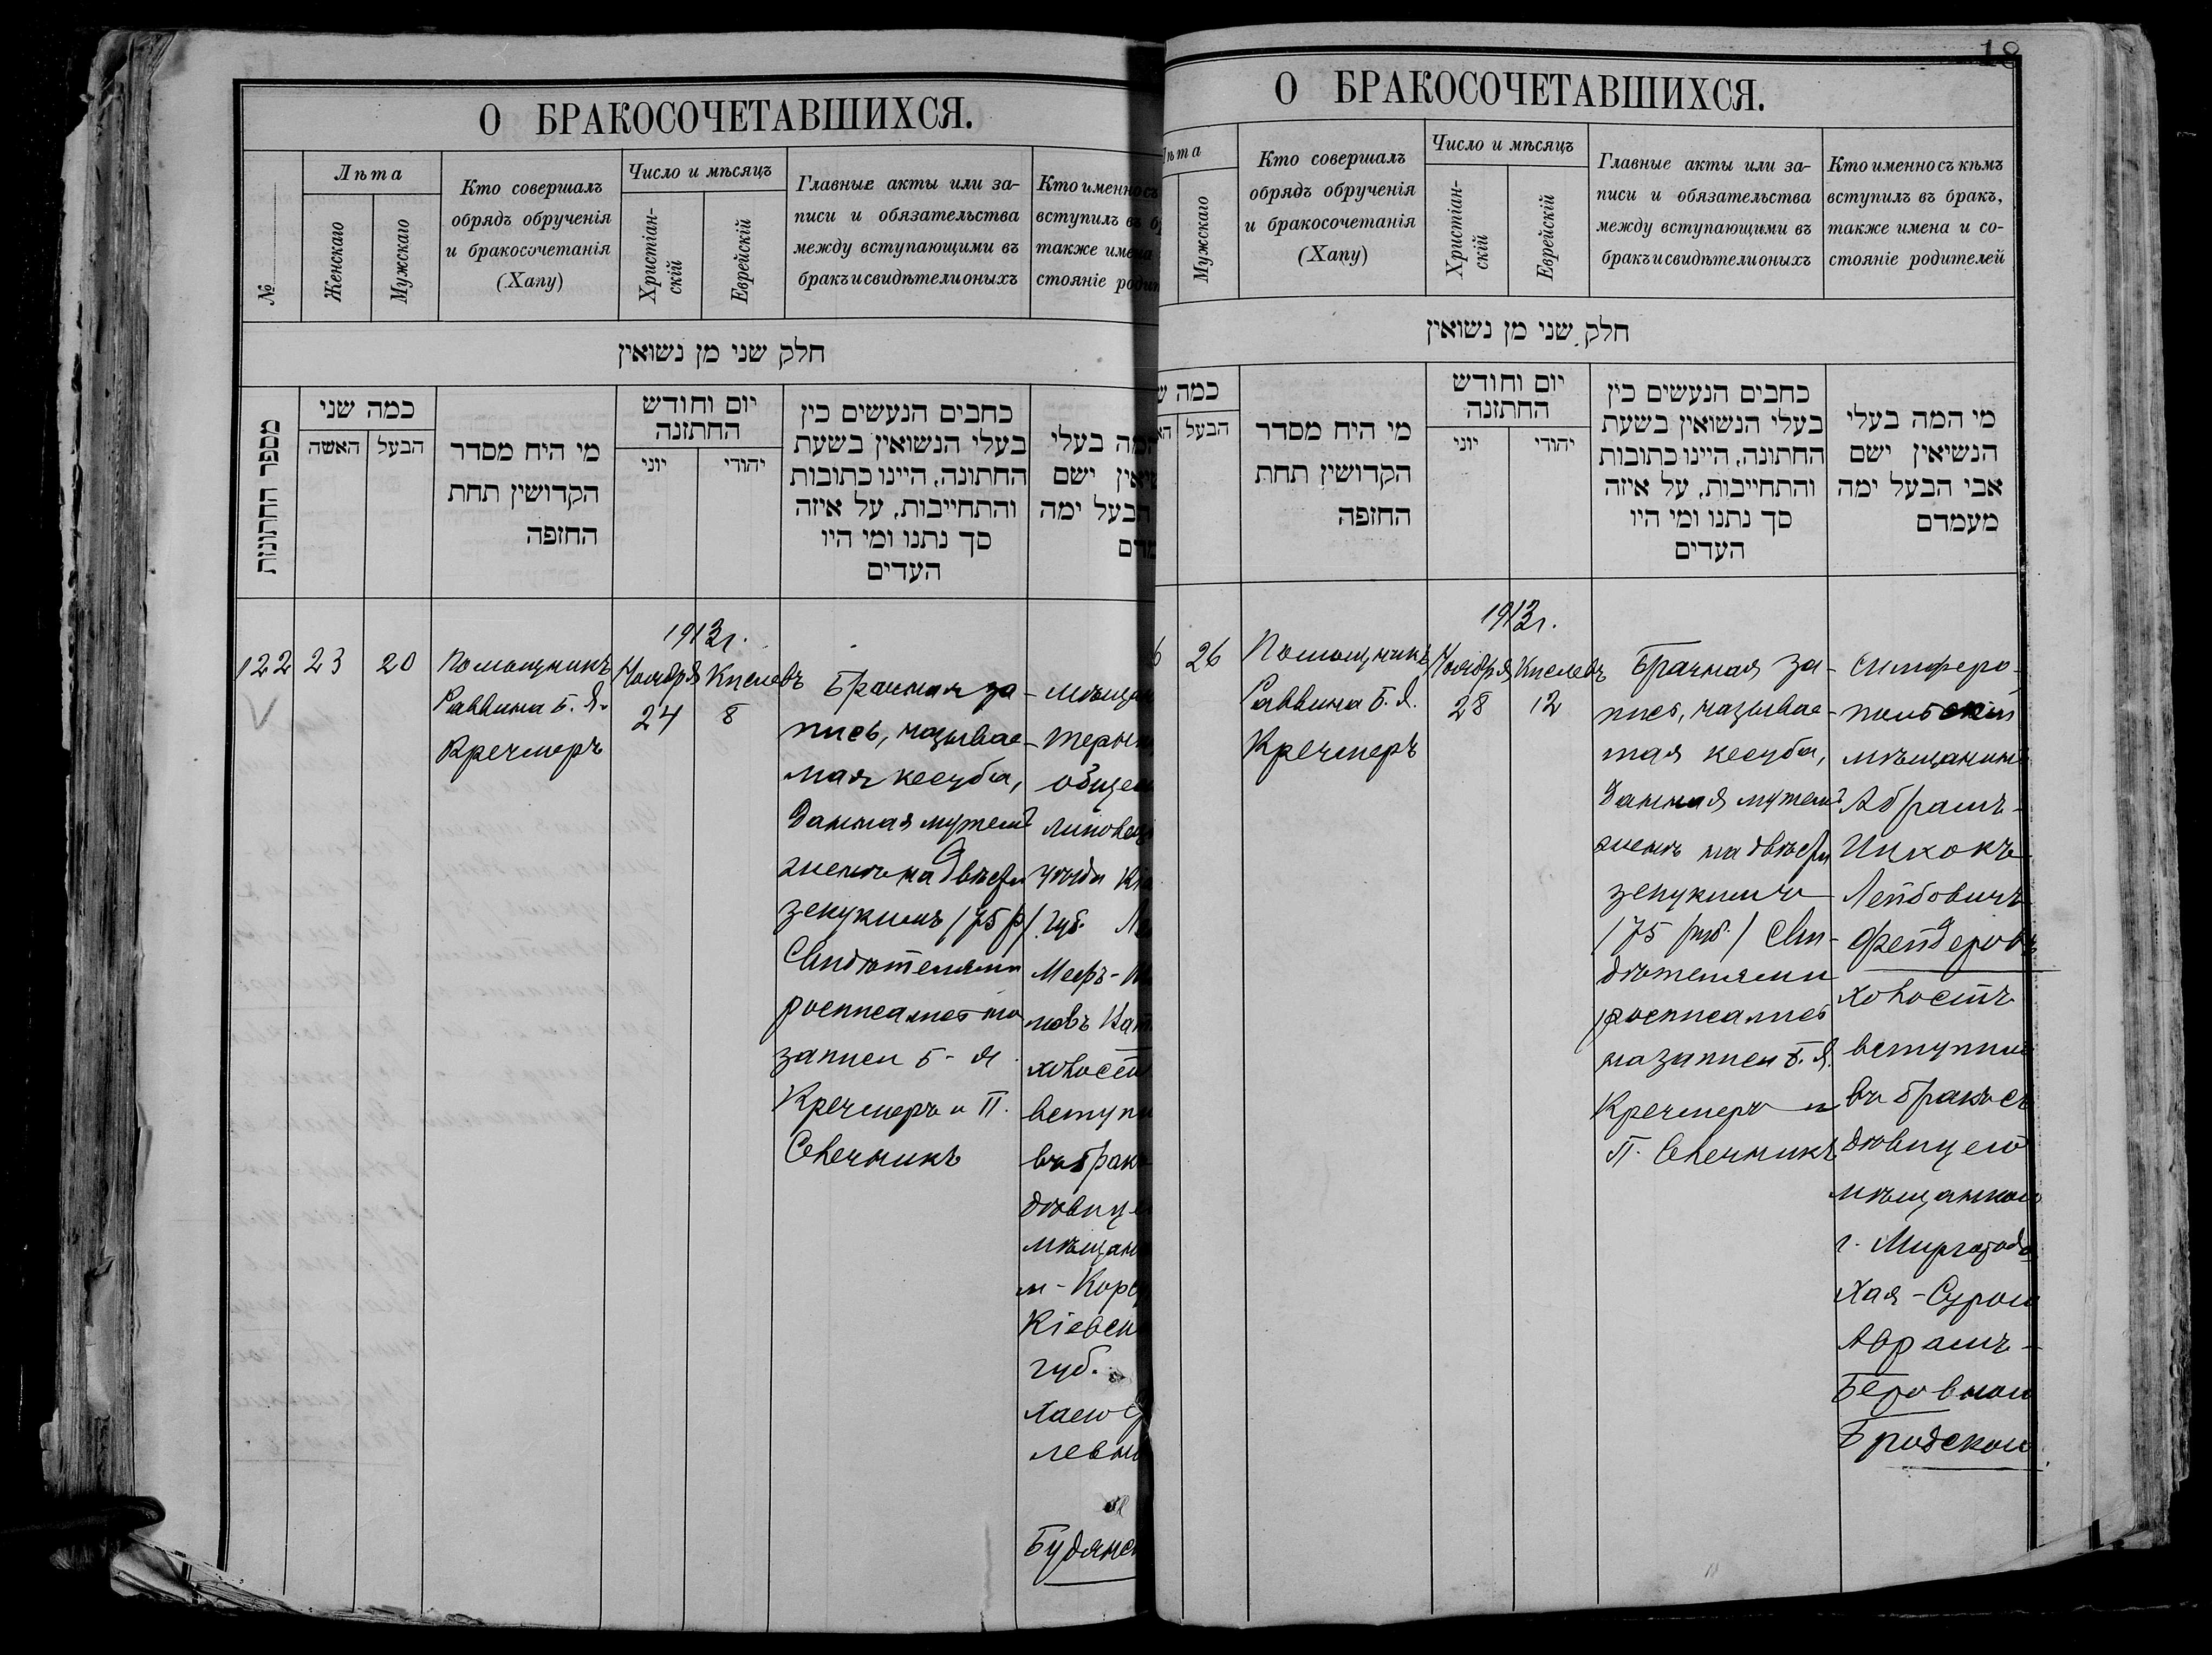 О БРАКОСОЧЕТАВШИХСЯ.
№
Лѣта
Женскаго
Мужскаго
Кто совершалъ
обрядъ обрученія
и бракосочетанія
(Хапу)
Число и мѣсяцъ
Христіан-
скій
Еврейскій
Главные акты или за-
писи и обязательства
между вступающими въ
бракъ и свидѣтели оныхъ
Кто именно съ
вступилъ въ
также имена
стояніе
חלק שני מן נשואין
מספר החתונות
כמה שני
האשה
הבעל
מי היח מסדר
הקדושין תחת
החופה
יום וחודש
החתונה
יוני
יהודי
כתבים הנעשים בין
בעלי הנשואין בשעת
החתונה, היינו כתובות
והתחייבות, על איזה
סך נתנו ומי היו
העדים
בעלי
ישם
הבעל ימה
1913 г.
122 23 20
Помощникъ
Раввина Б. Я.
Кречмеръ
Ноября
24
Кислевъ
8
Брачная за-
пись, называе-
мая кесуба,
данная мужемъ
женѣ на двѣсти
зекукимъ /75 р/
Свидѣтелями
росписались на
записи Б. Я.
Кречмеръ и П.
Свечникъ
губ.
Мееръ-
вступи
въ бракъ
м. Корс
Кіевск
губ.
Хаею
левно
Будянск
18
О БРАКОСОЧЕТАВШИХСЯ.
Мужскаго
Кто совершалъ
обрядъ обрученія
и бракосочетанія
(Хапу)
Число и мѣсяцъ
Христіан-
скій
Еврейскій
Главные акты или за-
писи и обязательства
между вступающими въ
бракъ и свидѣтели оныхъ
Кто именно съ кѣмъ
вступилъ въ бракъ,
также имена и со-
стояніе родителей
חלק שני מן נשואין
כמה
הבעל
מי היח מסדר
הקדושין תחת
החופה
יום וחודש
החתונה
יוני
יהודי
כתבים הנעשים בין
בעלי הנשואין בשעת
החתונה, היינו כתובות
והתחייבות, על איזה
סך נתנו ומי היו
העדים
מי המה בעלי
הנשיאין ישם
אבי הבעל ימה
מעמדם
1913 г.
6 26
Помощникъ
Раввина Б. Я.
Кречмеръ
Ноября
28
Кислевъ
12
Брачная за-
пись, называе-
мая кесуба,
данная мужемъ
женѣ на двѣсти
зекукимъ
/75 руб./ Сви-
дѣтелями
росписались
на записи Б. Я.
Кречмеръ и
П. Свечникъ
Симферо-
польскій
мѣщанинъ
Абрамъ-
Ицхокъ
Лейбовичъ
Фейдеровъ
холостъ
вступилъ
въ бракъ съ
дѣвицею
мѣщанкою
г. Миргорода
Хая-Сурою
Абрамъ-
Беровною
Бродскою.